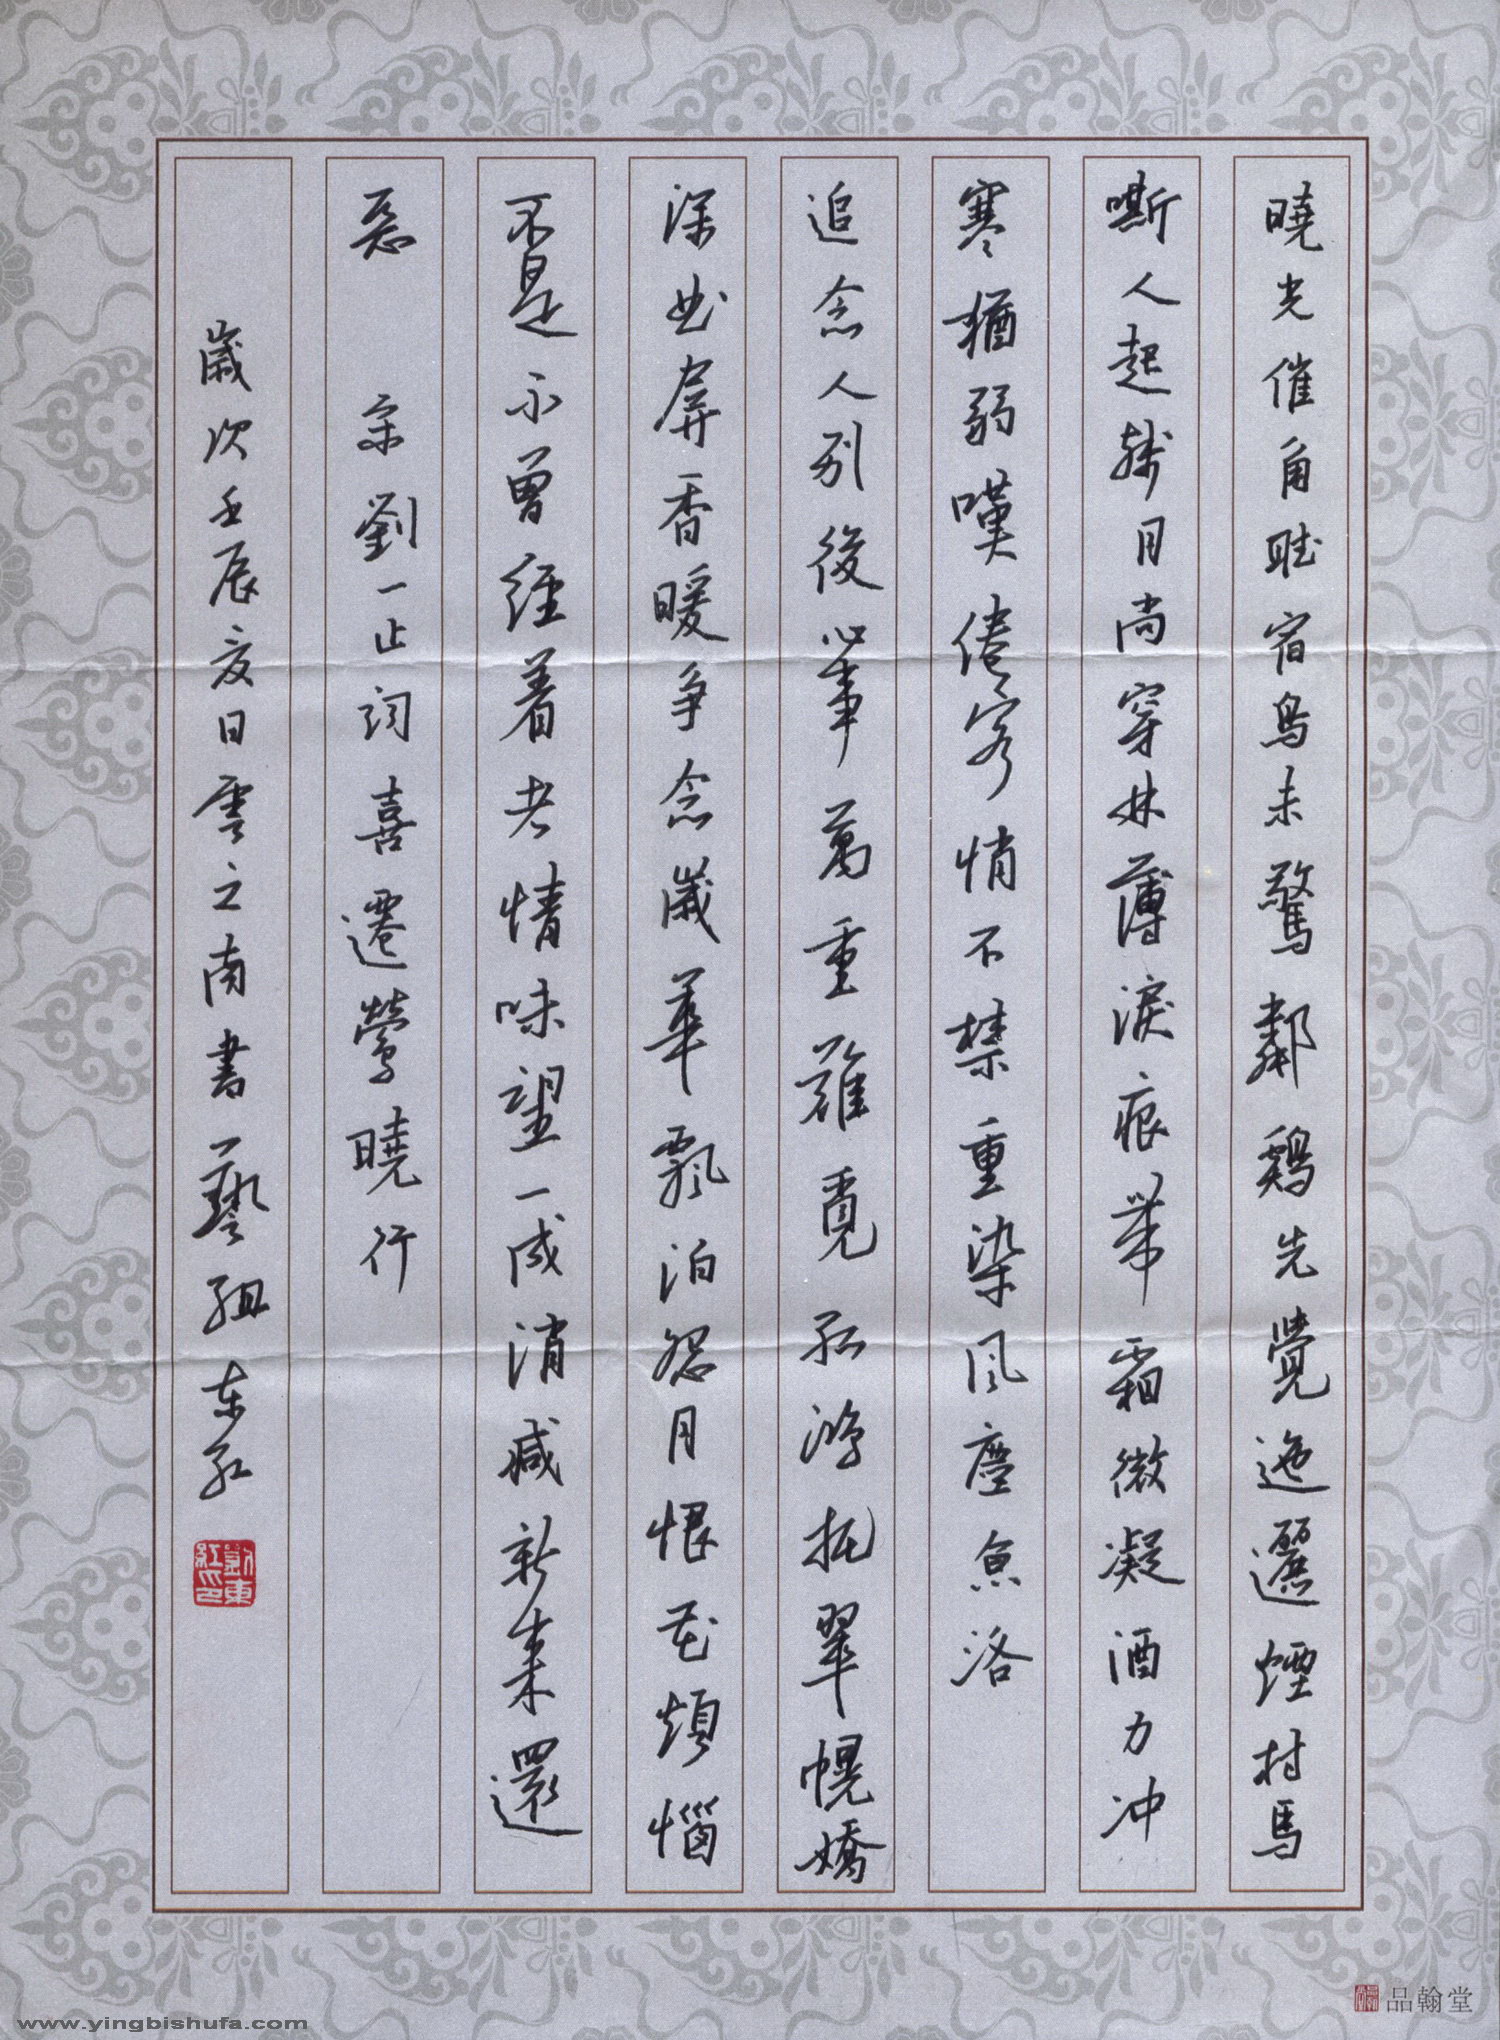 曉光催角聴宿鳥未驚鄰鷄先覺迤邐煙村馬
嘶人起殘月尚穿林薄淚痕帶霜微凝酒力冲
寒猶弱嘆倦客悄不禁重染風塵京洛
追念人别後心事萬重難覓孤鴻托翠幌嬌
深曲屏香暖争念歲華飄泊怨月恨花煩惱
不是不曾經着者情味望一成消减新來還
惡 宋劉一止詞喜遷鶯曉行
歲次壬辰夏日雲之南書藝組東紅
劉東紅印
品翰堂
www.yingbishufa.com